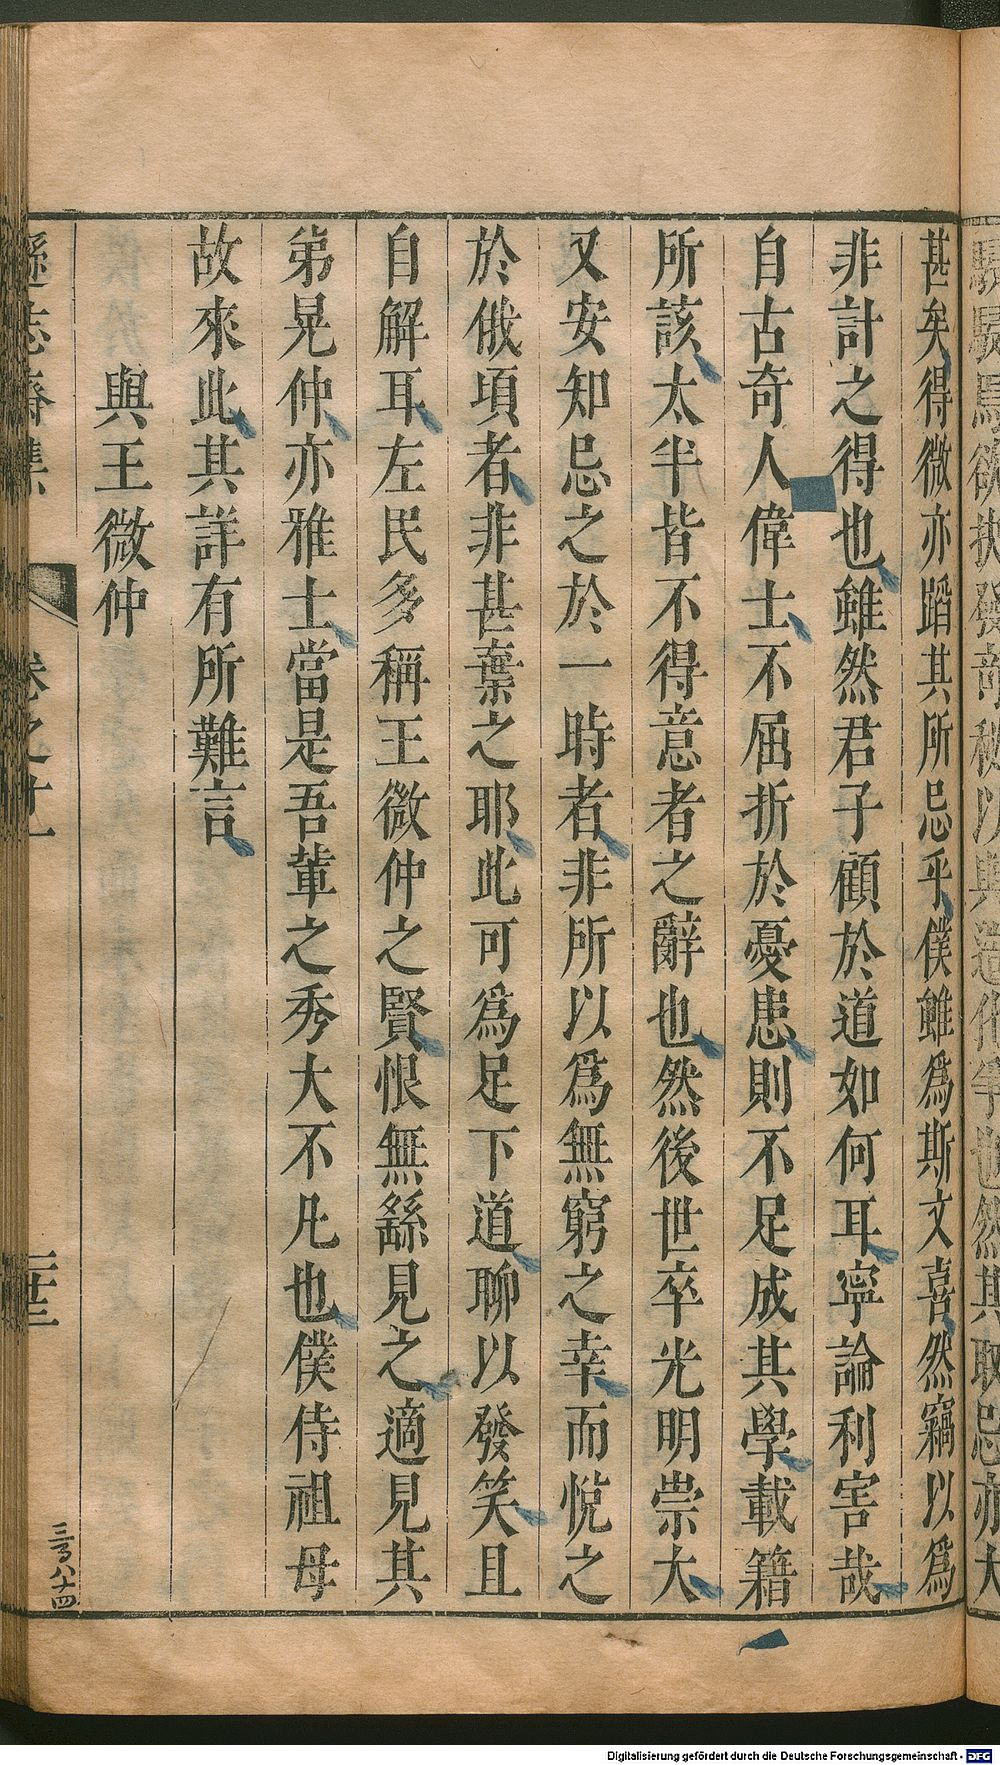 甚矣得微亦蹈其所忌乎僕雖爲斯文喜然竊以爲
非計之得也雖然君子顧於道如何耳寧論利害哉
自古奇人偉士不屈折於憂患則不足成其學載籍
所該太半皆不得意者之辭也然後世卒光明崇大
又安知忌之於一時者非所以爲無窮之幸而悅之
於俄頃者非甚棄之耶此可爲足下道聊以發笑且
自解耳左民多稱王微仲之賢恨無繇見之適見其
弟晃仲亦雅士當是吾輩之秀大不凡也僕侍祖母
故來此其詳有所難言
與王微仲
遜志齋集
卷之十一
二十三
Digitalisierung gefördert durch die Deutsche Forschungsgemeinschaft - DFG